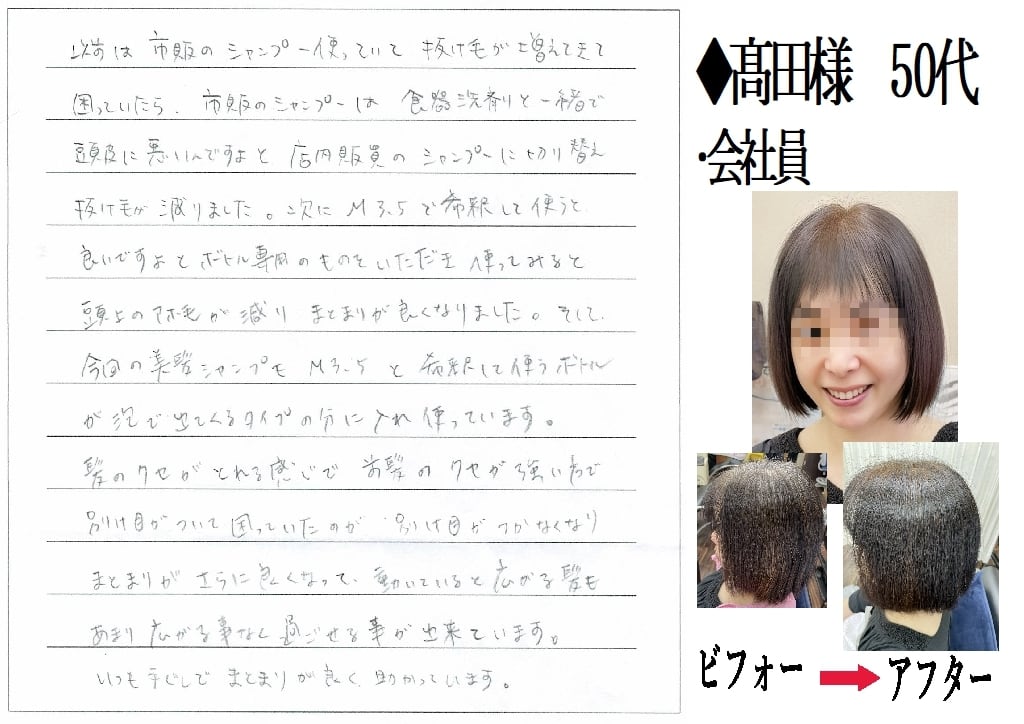 以前は市販のシャンプー使っていて抜け毛が増えて来て
困っていたら、市販のシャンプーは食器洗剤と一緒で
頭皮に悪いんですよと店内販員のシャンプーに切り替え
抜け毛が減りました。次にM3.5で希釈して使うと
良いですよとボトル専用のものをいただき使ってみると
頭上のアホ毛が減りまとまりが良くなりました。そして、
今回の美髪シャンプーもM3.5と希釈して使うボトル
が泡で出てくるタイプの分に入れ使っています。
髪のクセがとれる感じで前髪のクセが強い方で
別け目がついて困っていたのが別け目がつかなくなり
まとまりがさらに良くなって、動いていると広がる髪も
あまり広がる事なく過ごせる事が出来ています。
いつも手ぐしでまとまりが良く、助かっています。
◆髙田様 50代
・会社員
ビフォー
アフター